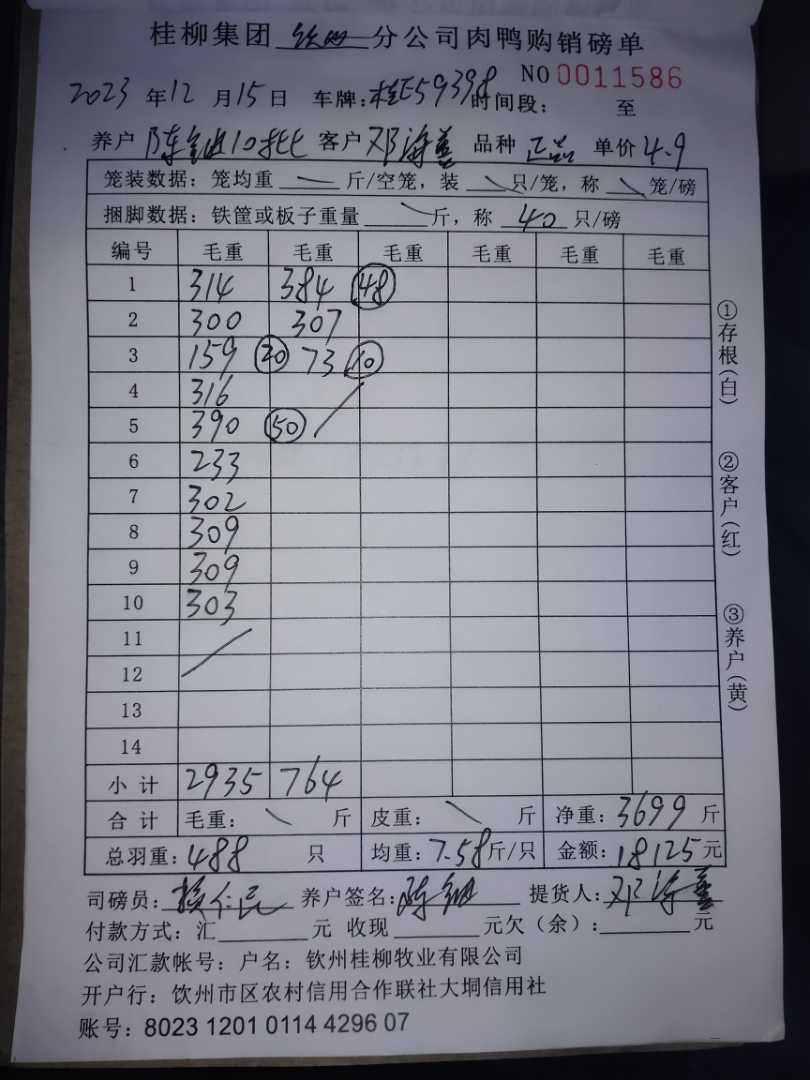 桂柳集团 钦州 分公司肉鸭购销磅单
NO 0011586
2023 年 12 月 15 日 车牌:桂E59398 时间段: 至
养户 陈 10批 客户 邓海善 品种 正品 单价 4.9
笼装数据:笼均重 斤/空笼,装 只/笼,称 笼/磅
捆脚数据:铁筐或板子重量 斤,称 40 只/磅
编号 毛重 毛重 毛重 毛重 毛重 毛重
1 314 384 48
2 300 307
3 159 20 73 10
4 316
5 390 50
6 233
7 302
8 309
9 309
10 303
11
12
13
14
小计 2935 764
合计 毛重: 斤 皮重: 斤 净重:3699 斤
总羽重:488 只 均重:7.58 斤/只 金额:18125 元
司磅员: 养户签名:陈 提货人:邓海善
付款方式:汇 元 收现 元欠(余): 元
公司汇款帐号:户名:钦州桂柳牧业有限公司
开户行:钦州市区农村信用合作联社大垌信用社
账号:8023 1201 0114 4296 07
①存根(白)
②客户(红)
③养户(黄)